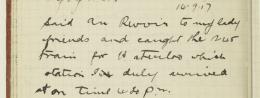 14-9-17
Said Au Revoir to my lady
friends and caught the 2.45
train for Waterloo which
station I duly arrived
at on time 4.40 p.m.